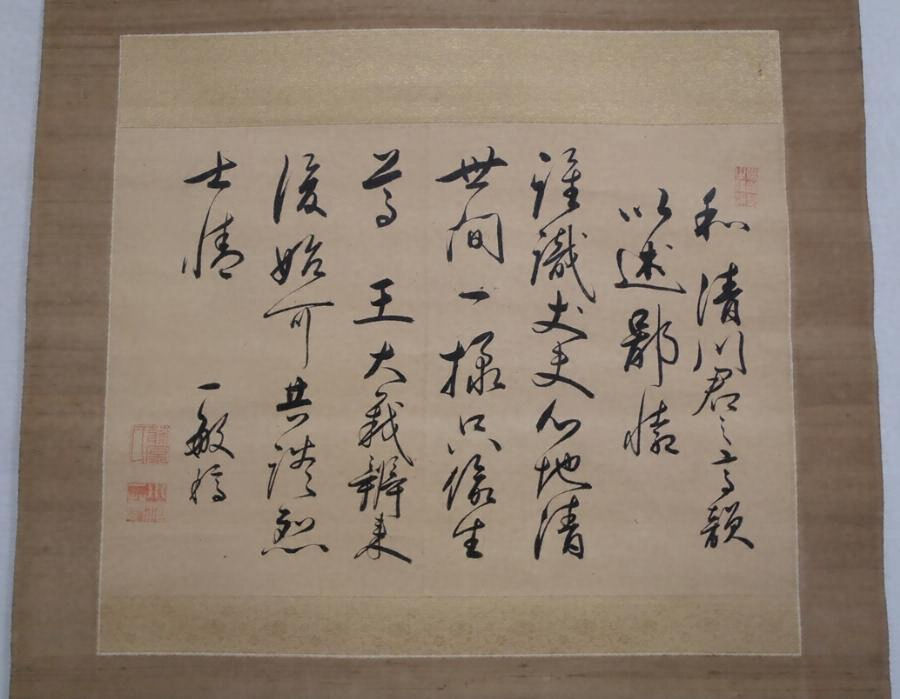 和清川君之高韻
以述鄙懐
誰識丈夫心地清
世間一様只偸生
尊 王大義辨来
後始可共談烈
士情 一敏